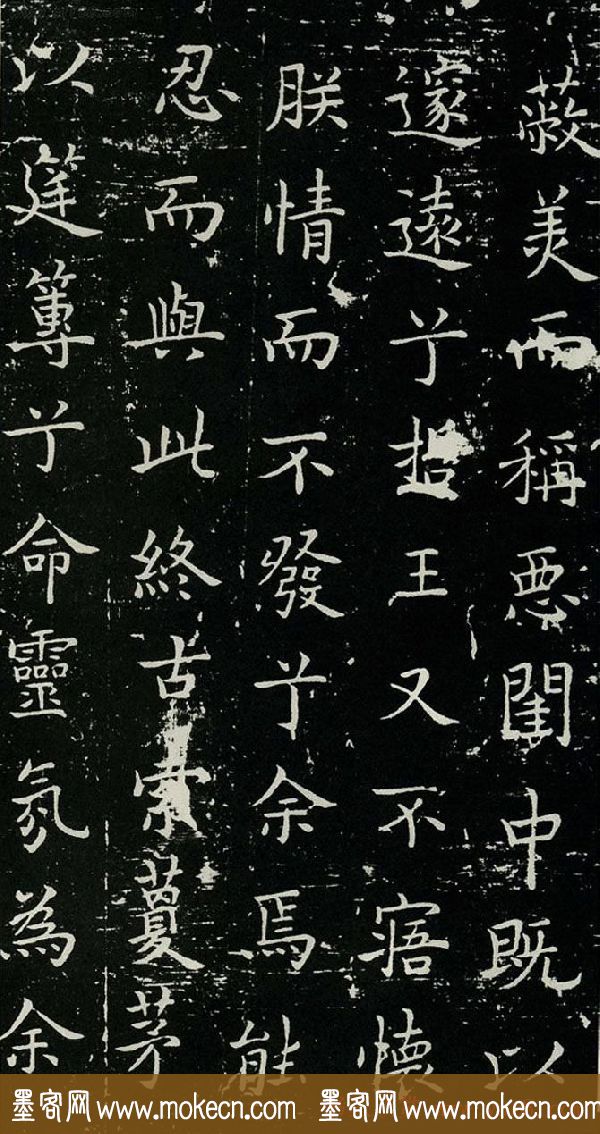 蔽美而稱惡閨中既以
邃遠兮哲王又不寤懷
朕情而不發兮余焉能
忍而與此終古索藑茅
以筳篿兮命靈氛為余
墨客网 www.mokecn.com 墨客网 www.mokecn.com